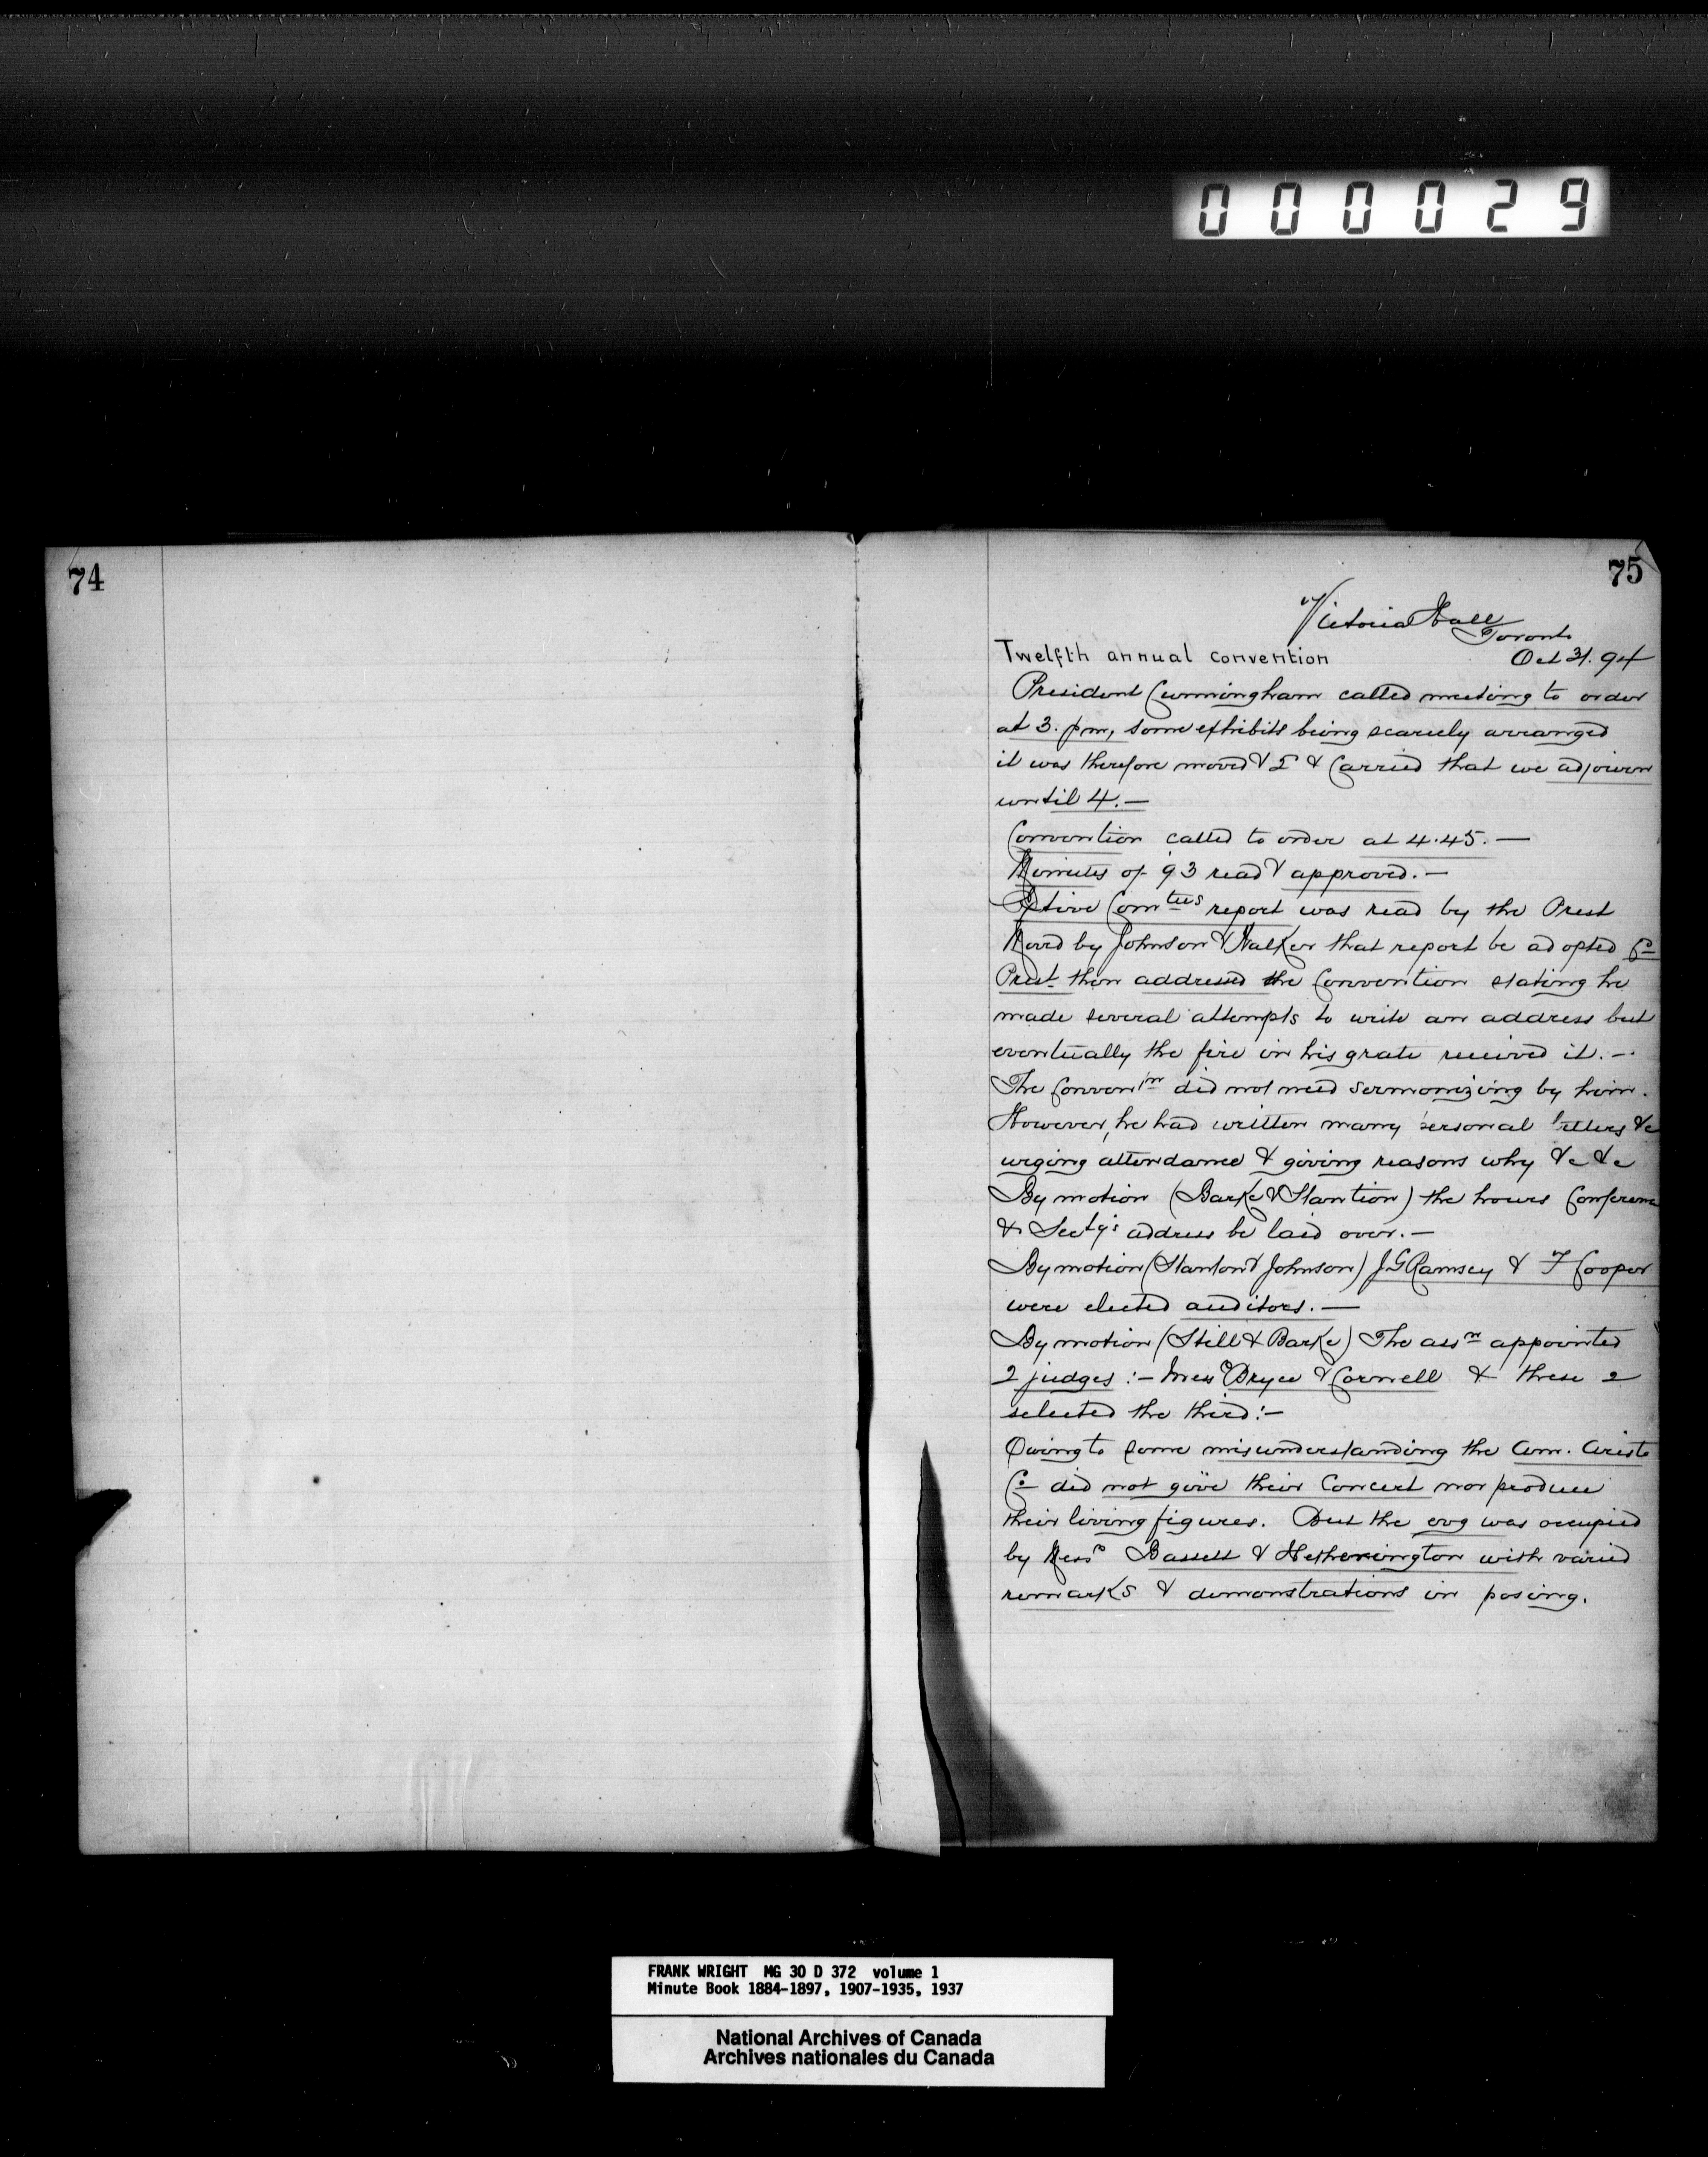 000029
74
75
Victoria Hall
Toronto
Twelfth annual convention Oct 31. 94
President Cunningham called meeting to order
at 3. pm, some exhibits being scarcely arranged
it was therefore moved & S & Carried that we adjourn
until 4. —
Convention called to order at 4.45. —
Minutes of '93 read & approved. —
Extive Comtees report was read by the Prest
Moved by Johnson & Walker that report be adopted Cd
Prest then addressed the Convention stating he
made several attempts to write an address but
eventually the fire in his grate received it. —
The Conventn did not need sermonizing by him.
However, he had written many personal letters &c
urging attendance & giving reasons why &c &c
By motion (Barke & Stanton) the hours Conference
& Secty's address be laid over. —
By motion (Stanton & Johnson) J G Ramsey & F Cooper
were elected auditors. —
By motion (Still & Barke) The assn appointed
2 judges :- Mess Bryce & Cornell & these 2
selected the third:-
Owing to some misunderstanding the Am. Aristo
Co did not give their Concert nor produce
their living figures. But the evg was occupied
by Messrs Bassett & Hetherington with varied
remarks & demonstrations in posing.
FRANK WRIGHT MG 30 D 372 volume 1
Minute Book 1884-1897, 1907-1935, 1937
National Archives of Canada
Archives nationales du Canada